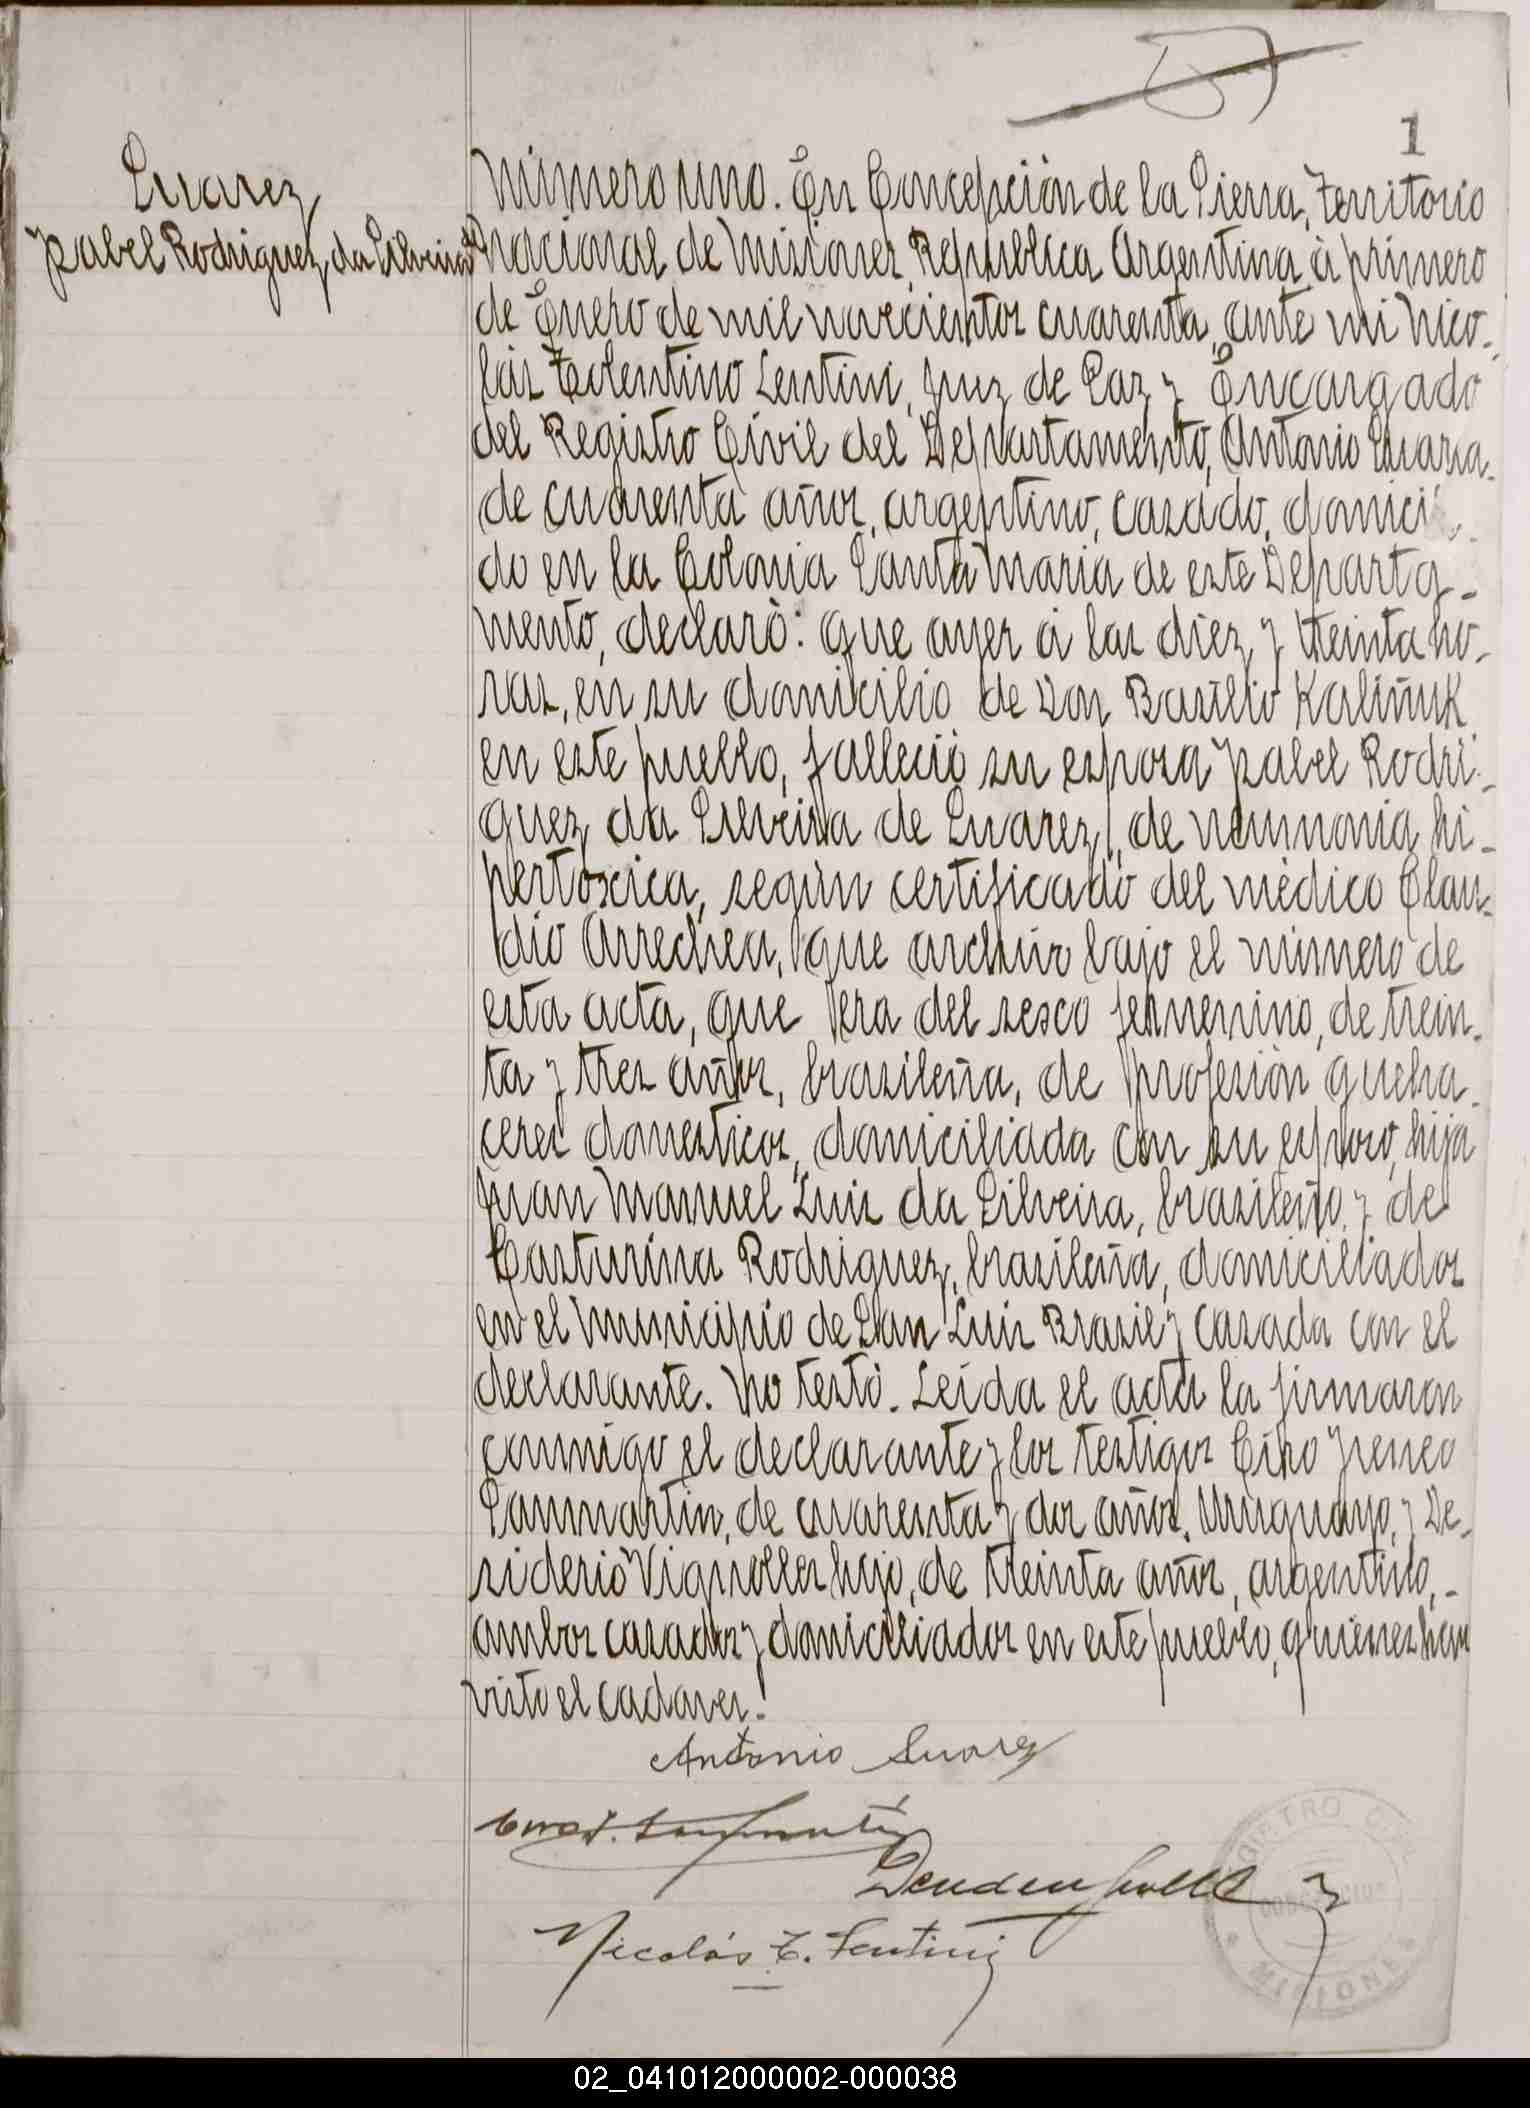 1
Suarez
Ysabel Rodriguez da Silveira de
Número uno. En Concepción de la Sierra, Territorio
Nacional de Misiones, República Argentina, à primero
de Enero de mil novecientos cuarenta, ante mi Nico-
lás Tolentino Lentini, Juez de Paz y Encargado
del Registro Civil del Departamento, Antonio Suarez
de cuarenta años, argentino, casado, domici
do en la Colonia Santa Maria de este Departa-
mento, declaró: que ayer à las diez y treinta ho-
ras, en su domicilio de Don Basilio Kaliñuk
en este pueblo, falleció su esposa Ysabel Rodri-
guez da Silveira de Suarez, de neumonia hi-
pertoxica, según certificado del mèdico Clau-
dio Arrechea, que archivo bajo el nùmero de
esta acta, que era del sexo femenino, de trein-
ta y tres años, brasileña, de profesión queha-
ceres domesticos, domiciliada con su esposo, hija
Juan Manuel Luis da Silveira, brasileño, y de
Casturina Rodriguez, brasileña, domiciliados
en el municipio de San Luis Brasil y casada con el
declarante. No testó. Leída el acta la firmaron
conmigo el declarante y los testigos Ciro Yreneo
Sanmartin, de cuarenta y dos años, Uruguayo, y De-
siderio Vignolles hijo, de treinta años, argentino,-
ambos casados y domiciliados en este pueblo, quienes han
visto el cadaver.
Antonio Suarez
Nicolás T. Lentini
REGISTRO CIVIL
MISIONES
02_041012000002-000038